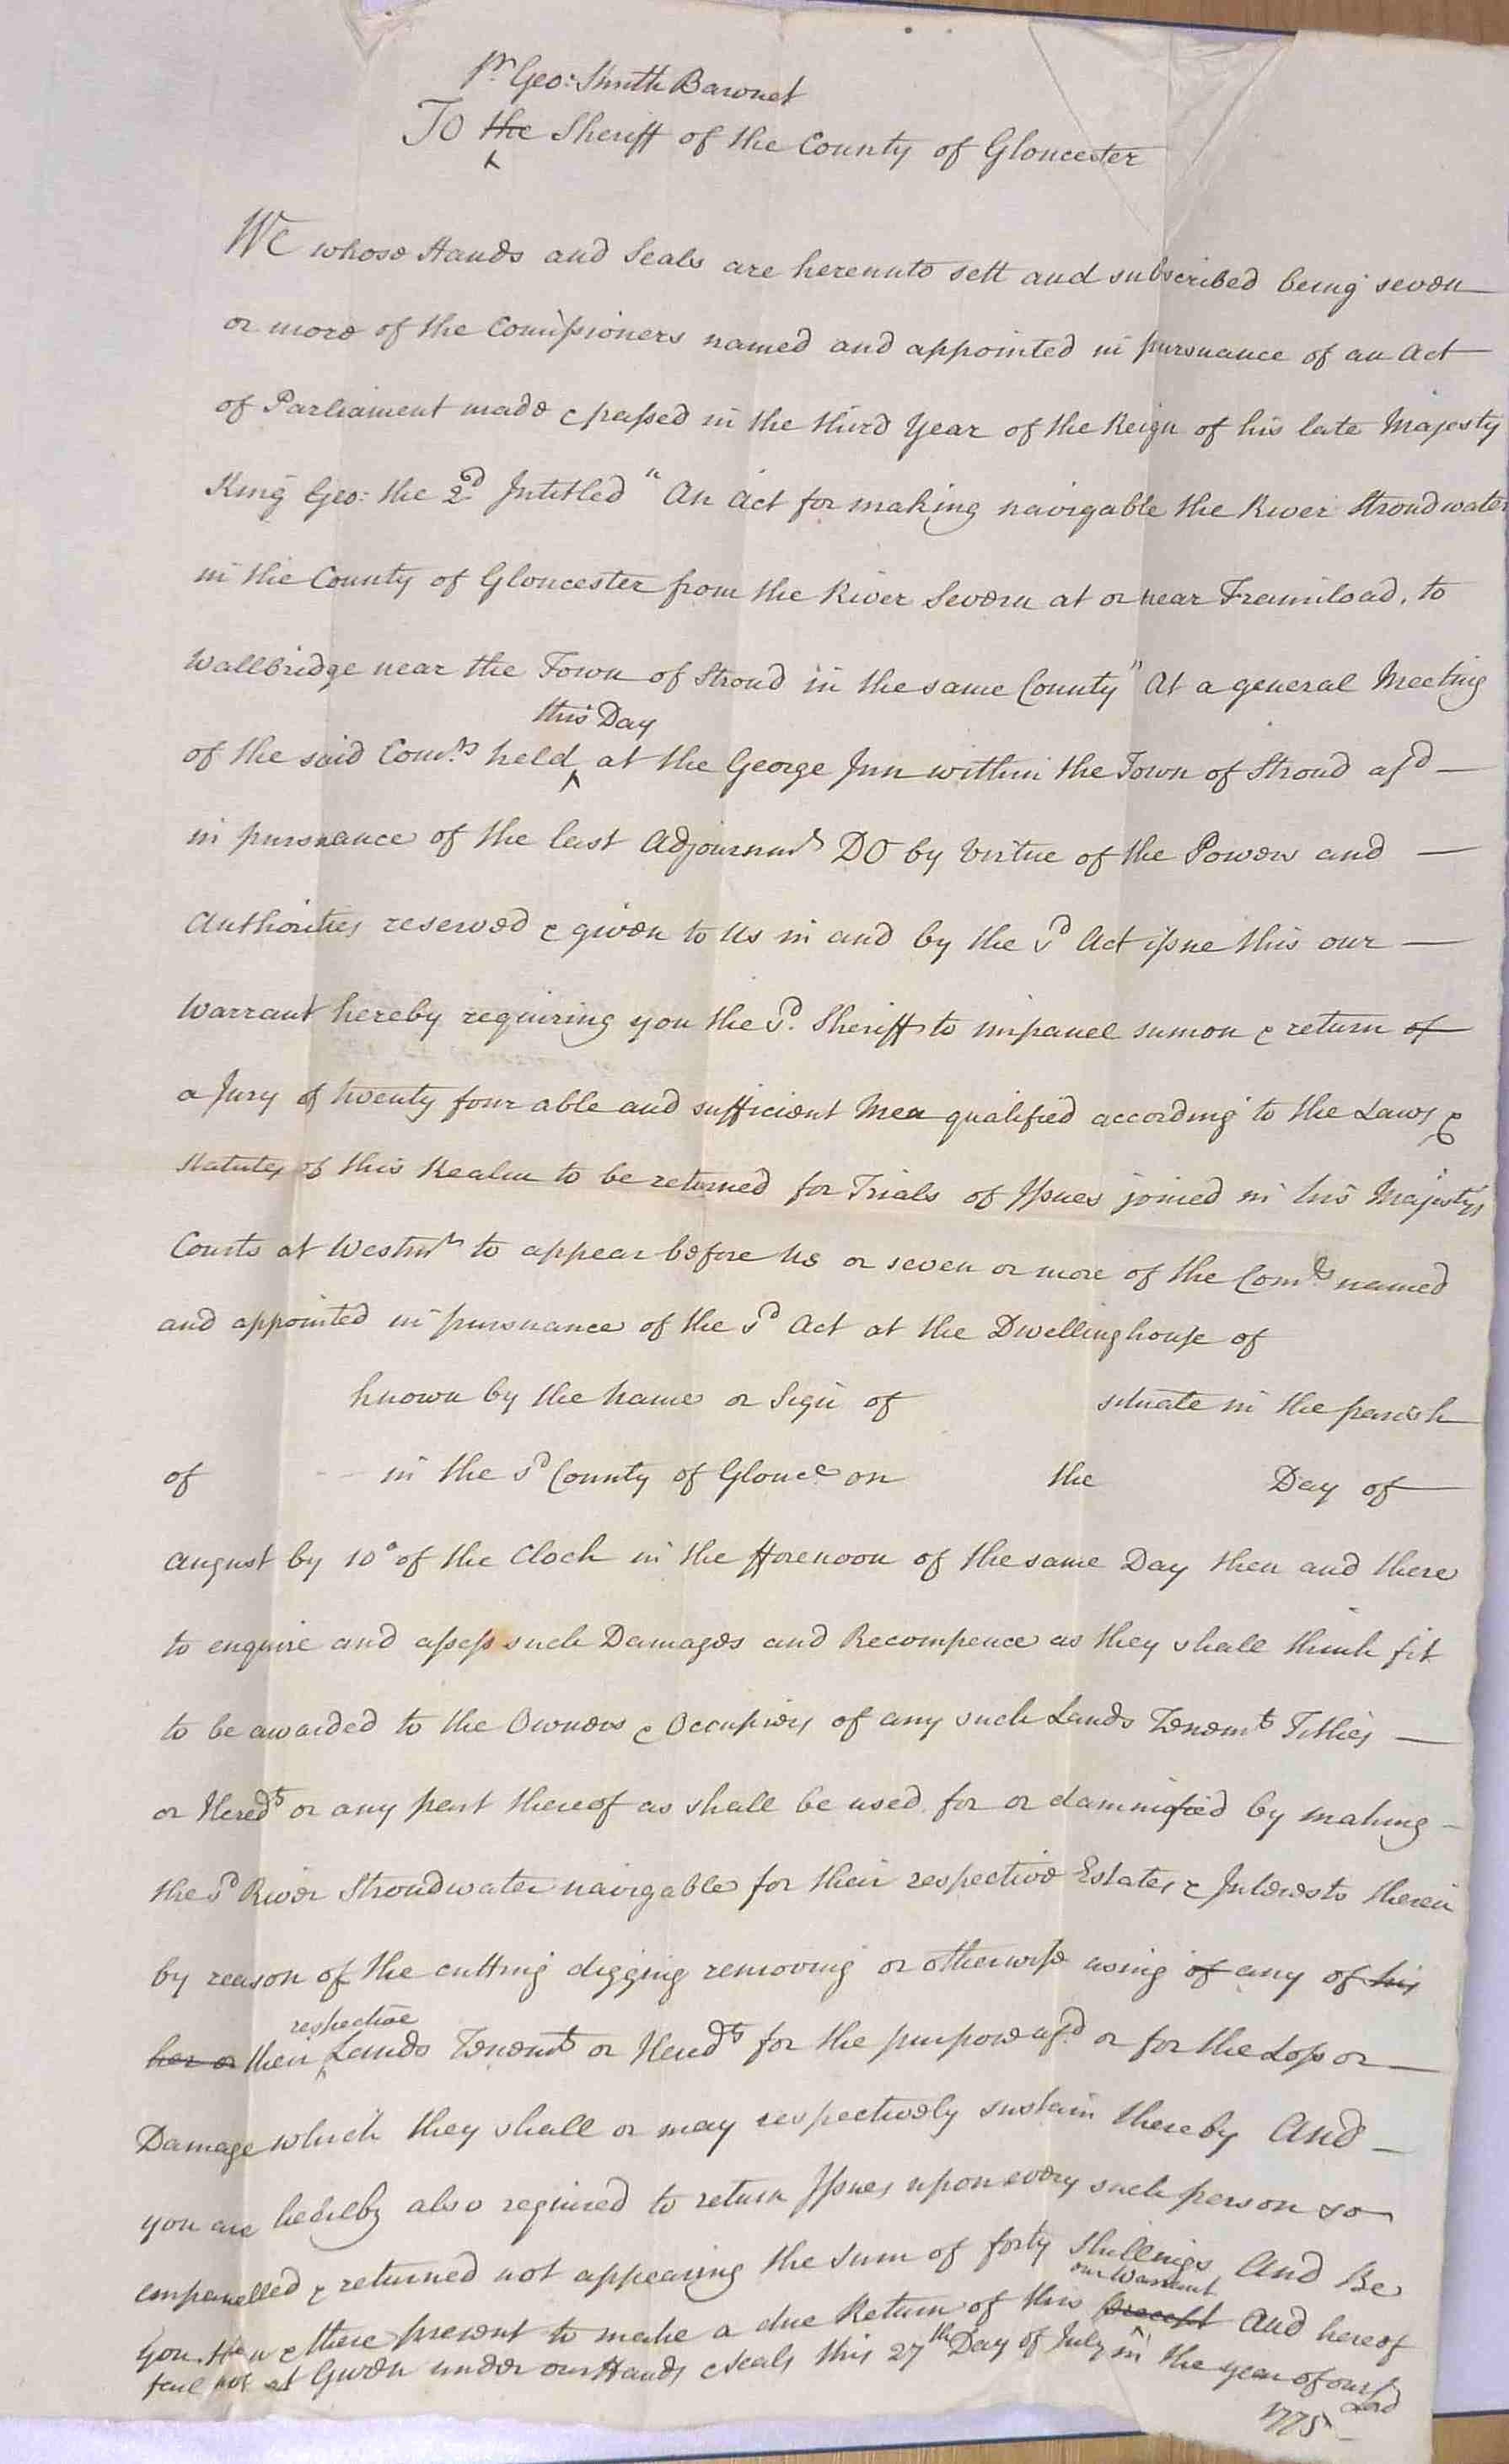 Sr. Geo: Smith Baronet
To the Sheriff of the County of Gloucester
We whose Hands and Seals are hereunto sett and subscribed being seven
or more of the Comissioners named and appointed in pursuance of an Act
of Parliament made & passed in the third Year of the Reign of his late Majesty
King Geo: the 2d Intitled "An Act for making navigable the River Stroudwater
in the County of Gloucester from the River Severn at or near Framiload, to
Wallbridge near the Town of Stroud in the same County" At a general Meeting
this Day
of the said Comrs. held at the George Inn within the Town of Stroud afd
in pursuance of the last Adjournmt DO by Virtue of the Powers and
Authorities reserved & given to Us in and by the sd Act issue this our
Warrant hereby requiring you the sd. Sheriff to impanel sumon & return of
a Jury of twenty four able and sufficient Men qualified according to the Laws &
Statutes of this Realm to be returned for Trials of Issues joined in his Majestys
Courts at Westmr to appear before Us or seven or more of the Comrs named
and appointed in pursuance of the sd Act at the Dwellinghouse of
known by the name or Sign of situate in the parish
of in the sd County of Glouce. on the Day of
August by 10o of the Clock in the fforenoon of the same Day then and there
to enquire and assess such Damages and Recompence as they shall think fit
to be awarded to the Owners & Occupiers of any such Lands Tenemts Tithes
or Heredts or any part thereof as shall be used for or damnified by making
the sd River Stroudwater navigable for their respective Estates & Interests therein
by reason of the cutting digging removing or otherwise using of any of his
respective
her or their Lands Tenemts or Heredts for the purpose afd or for the Loss or
Damage which they shall or may respectively sustain thereby And
you are hereby also required to return Issues upon every such person so
empanelled & returned not appearing the Sum of forty Shillings And Be
our Warrant
you then & there present to make a due Return of this precept And hereof
fail not at Given under our Hands & Seals this 27th Day of July in the year of our Lord
1775